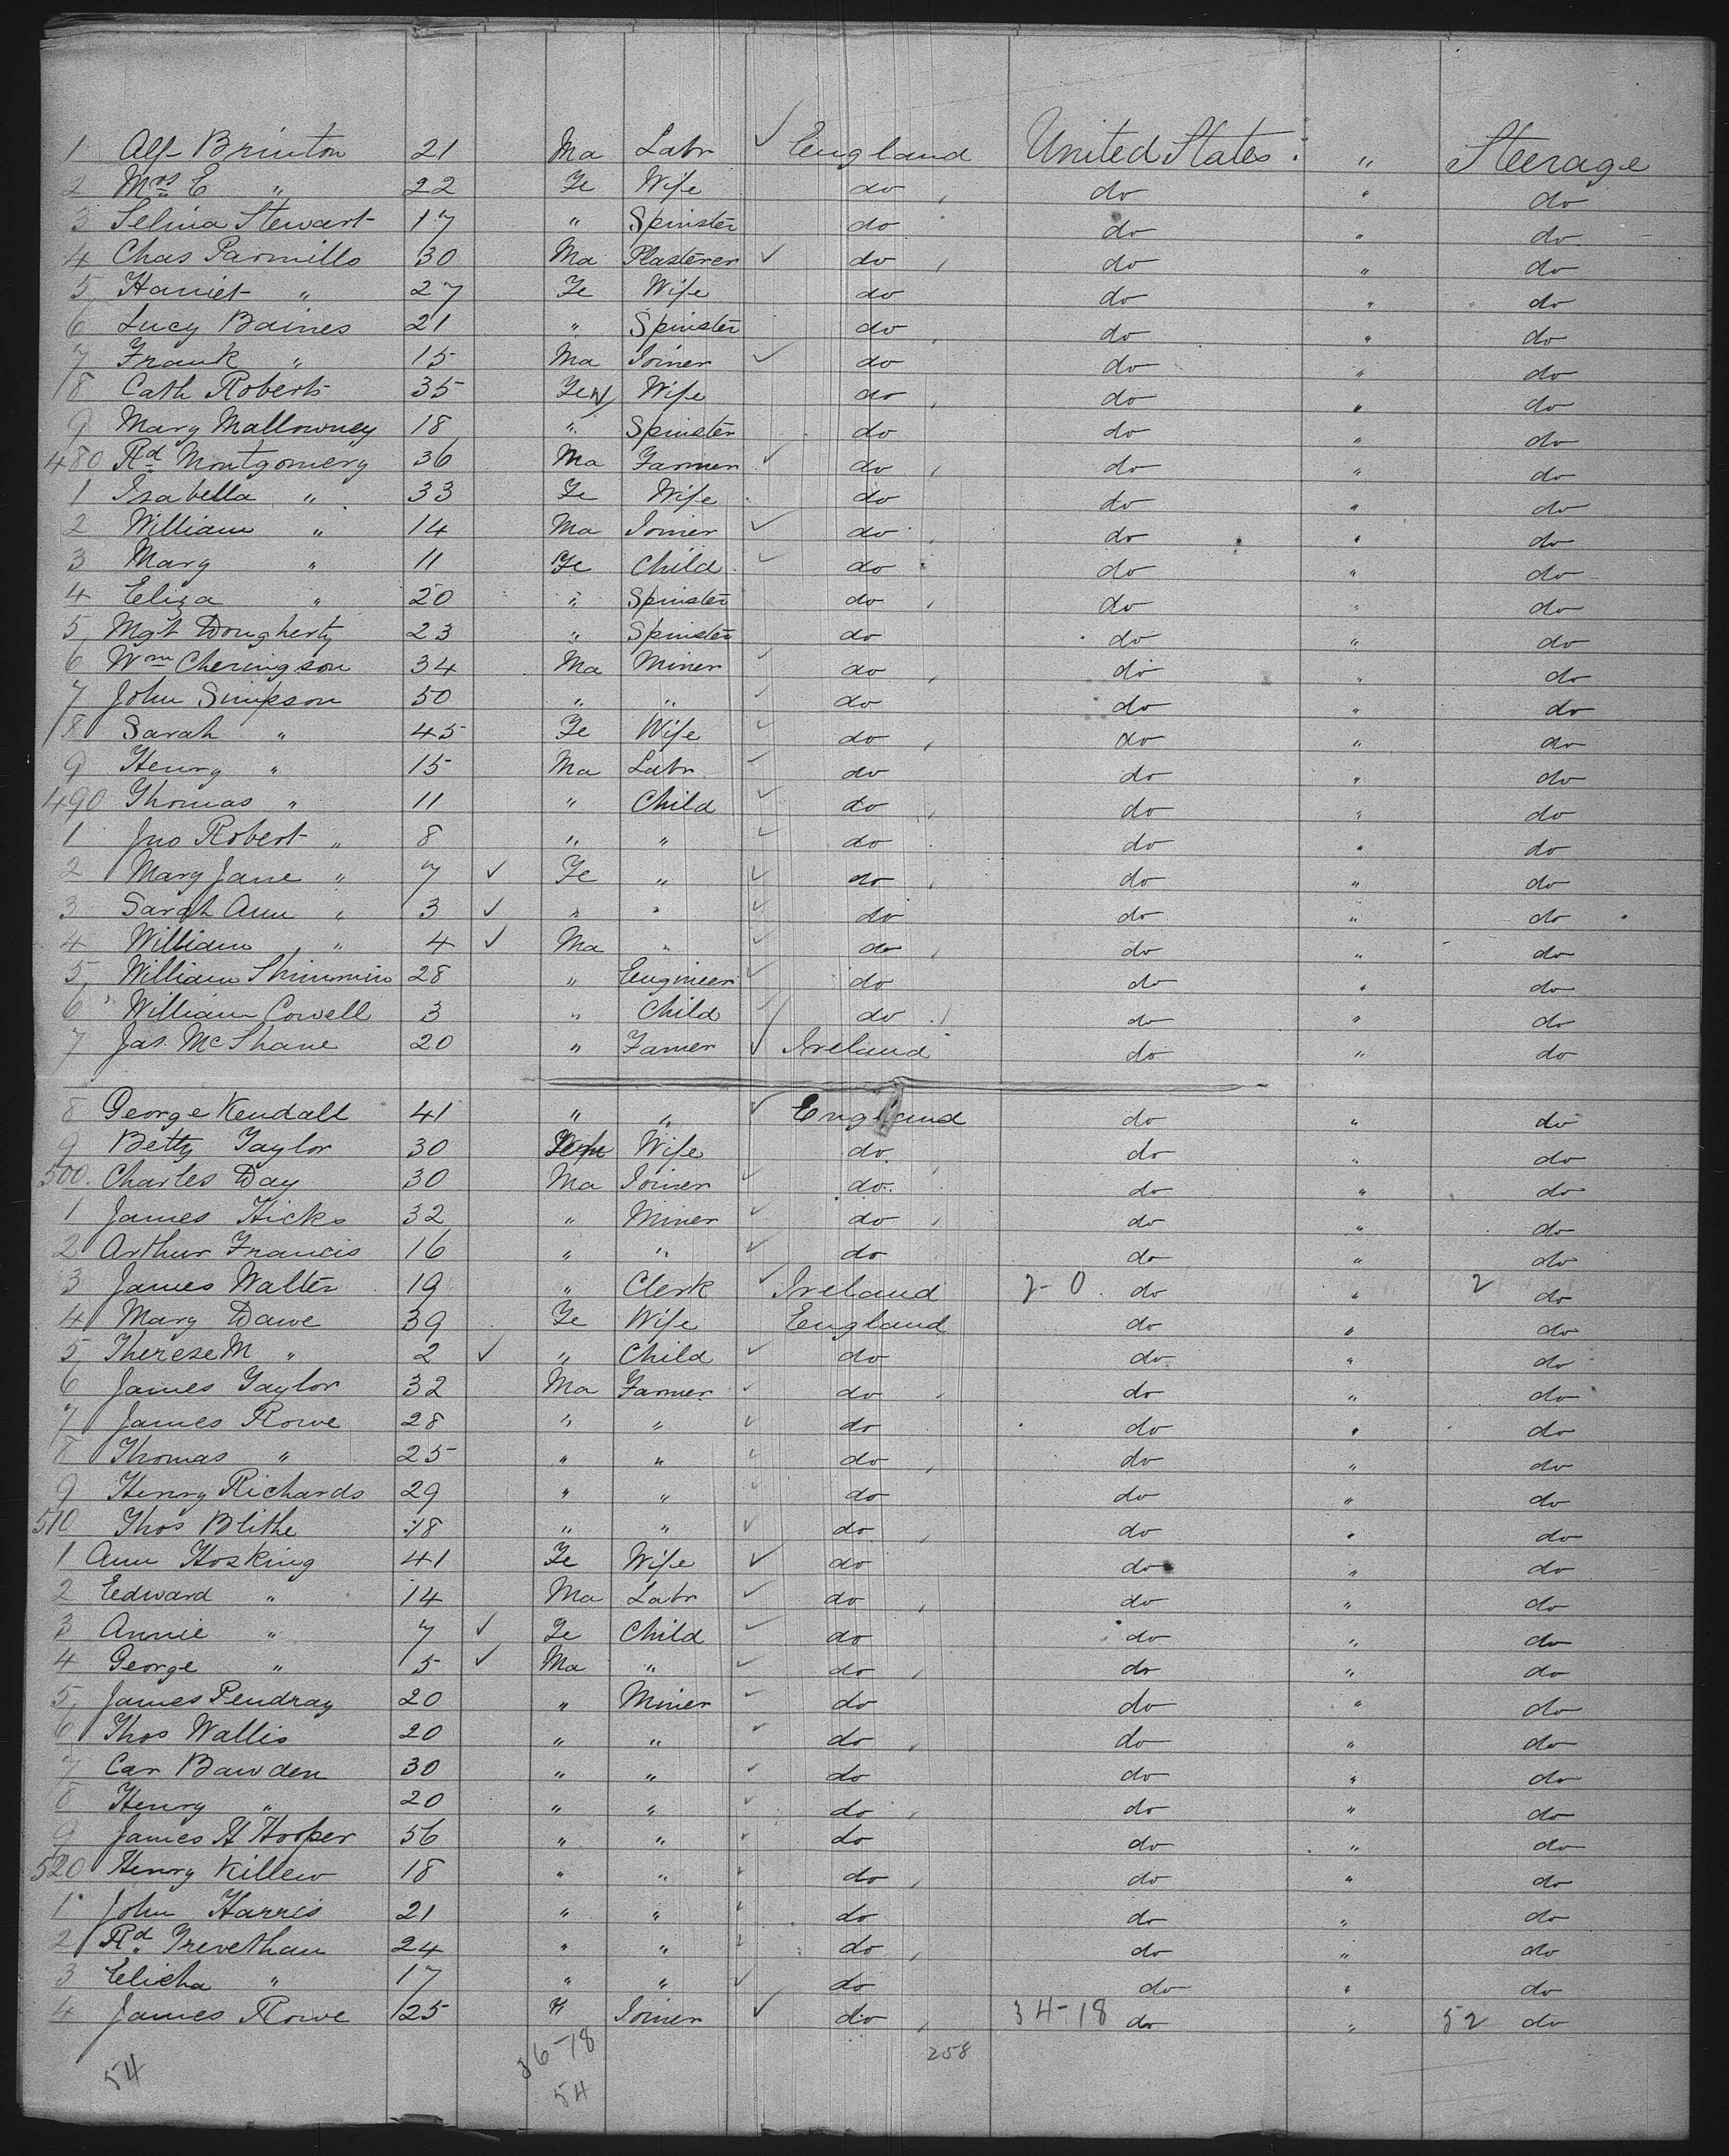 1 Alf Brinton 21 Ma Labr ✓ England United States " Steerage
2 Mrs E " 22 Fe Wife do do " do
3 Selina Stewart 17 " Spinster do do " do
4 Chas Parmillo 30 Ma Plasterer ✓ do do " do
5 Harriet " 27 Fe Wife do do " do
6 Lucy Baines 21 " Spinster do do " do
7 Frank " 15 Ma Joiner ✓ do do " do
8 Cath Roberts 35 Fe Wife do do " do
9 Mary Mallowney 18 " Spinster do do " do
480 Rd Montgomery 36 Ma Farmer ✓ do do " do
1 Isabella " 33 Fe Wife do do " do
2 William " 14 Ma Joiner ✓ do do " do
3 Mary " 11 Fe Child ✓ do do " do
4 Eliza " 20 " Spinster do do " do
5 Mgt Dougherty 23 " Spinster do do " do
6 Wm Cheringson 34 Ma Miner ✓ do do " do
7 John Simpson 50 " " ✓ do do " do
8 Sarah " 45 Fe Wife ✓ do do " do
9 Henry " 15 Ma Labr ✓ do do " do
490 Thomas " 11 " Child ✓ do do " do
1 Jno Robert " 8 " " ✓ do do " do
2 Mary Jane " 7 ✓ Fe " ✓ do do " do
3 Sarah Ann " 3 ✓ " " ✓ do do " do
4 William " 4 ✓ Ma " ✓ do do " do
5 William Shimmin 28 " Engineer ✓ do do " do
6 William Cowell 3 " Child ✓ do do " do
7 Jas. McShane 20 " Farmer ✓ Ireland do " do
8 George Kendall 41 " " ✓ England do " do
9 Betty Taylor 30 Wife do do " do
500. Charles Day 30 Ma Joiner ✓ do do " do
1 James Hicks 32 " Miner ✓ do do " do
2 Arthur Francis 16 " " ✓ do do " do
3 James Walter 19 " Clerk ✓ Ireland 2-0 do " 2 do
4 Mary Dawe 39 Fe Wife England do " do
5 Therese M " 2 ✓ " Child ✓ do do " do
6 James Taylor 32 Ma Farmer ✓ do do " do
7 James Rowe 28 " " ✓ do do " do
8 Thomas " 25 " " ✓ do do " do
9 Henry Richards 29 " " ✓ do do " do
510 Thos Blithe 18 " " ✓ do do " do
1 Ann Hosking 41 Fe Wife ✓ do do " do
2 Edward " 14 Ma Labr ✓ do do " do
3 Annie " 7 ✓ Fe Child ✓ do do " do
4 George " 5 ✓ Ma " ✓ do do " do
5 James Pendray 20 " Miner ✓ do do " do
6 Thos Wallis 20 " " ✓ do do " do
7 Car Bawden 30 " " ✓ do do " do
8 Henry " 20 " " ✓ do do " do
9 James H Hooper 56 " " ✓ do do " do
520 Henry Killew 18 " " ✓ do do " do
1 John Harris 21 " " ✓ do do " do
2 Rd Trevethan 24 " " ✓ do do " do
3 Elisha " 17 " " ✓ do do " do
4 James Rowe 25 " Joiner ✓ do 34-18 do " 52 do
54 36-18 258
54